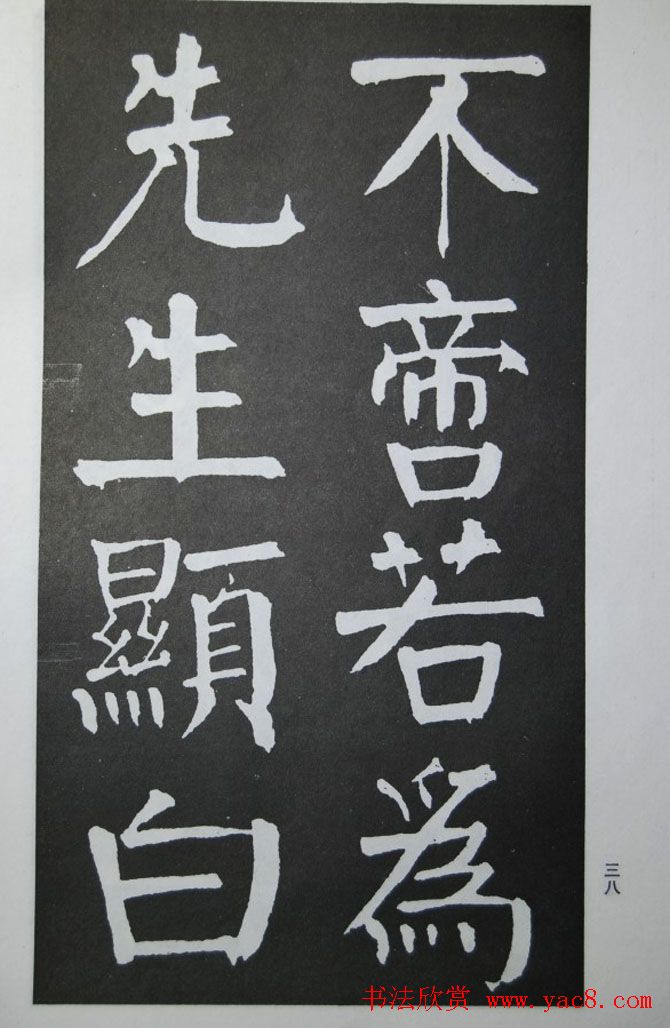 不啻若為
先生顯白
三八
书法欣赏 www.yac8.com